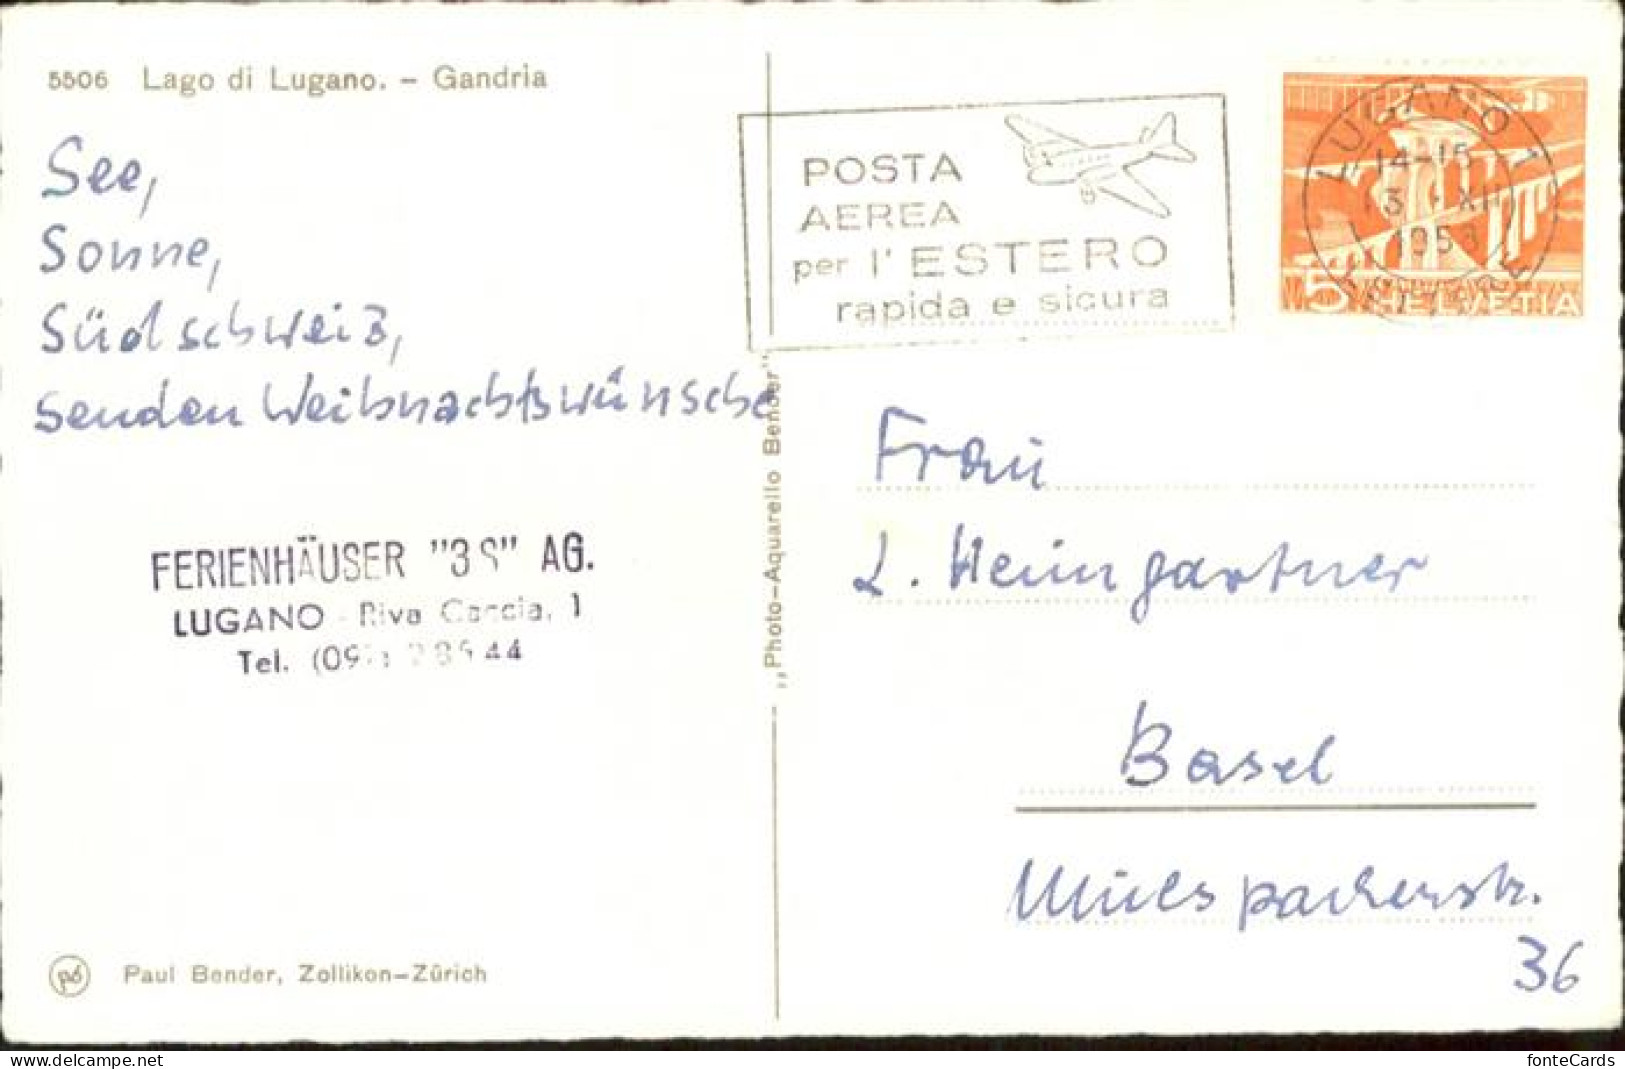 5506 Lago di Lugano. – Gandria
See,
Sonne,
Südschweiß,
senden Weihnachtswünsche
FERIENHÄUSER "3S" AG.
LUGANO - Riva Caccia, 1
Tel. 44
Paul Bender, Zollikon–Zürich
„Photo–Aquarello Bender"
POSTA
AEREA
per l'ESTERO
rapida e sicura
LUGANO 1
14–15
XII
1953
5 HELVETIA
Frau
L. Heimgartner
Basel
36
fonteCards